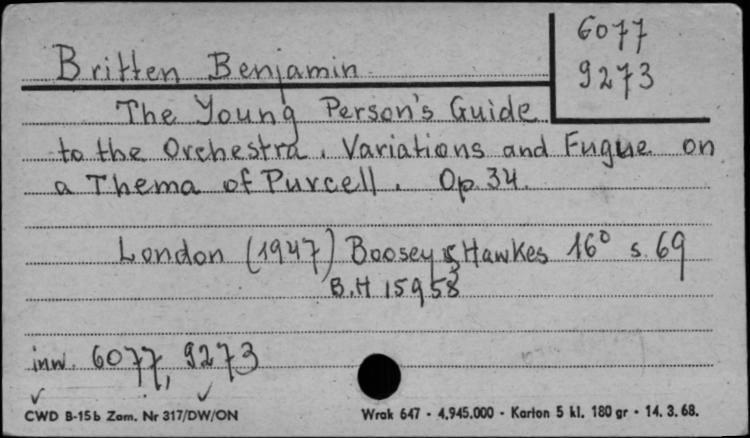 6077
9273
Britten Benjamin
The Young Person's Guide
to the Orchestra. Variations and Fugue on
a Thema of Purcell. Op. 34.
London (1947) Boosey & Hawkes 16° s. 69
B.H 15958
inw. 6077, 9273
CWD B-15b Zam. Nr 317/DW/ON
Wrak 647 - 4.945.000 - Karton 5 kl. 180 gr - 14. 3. 68.